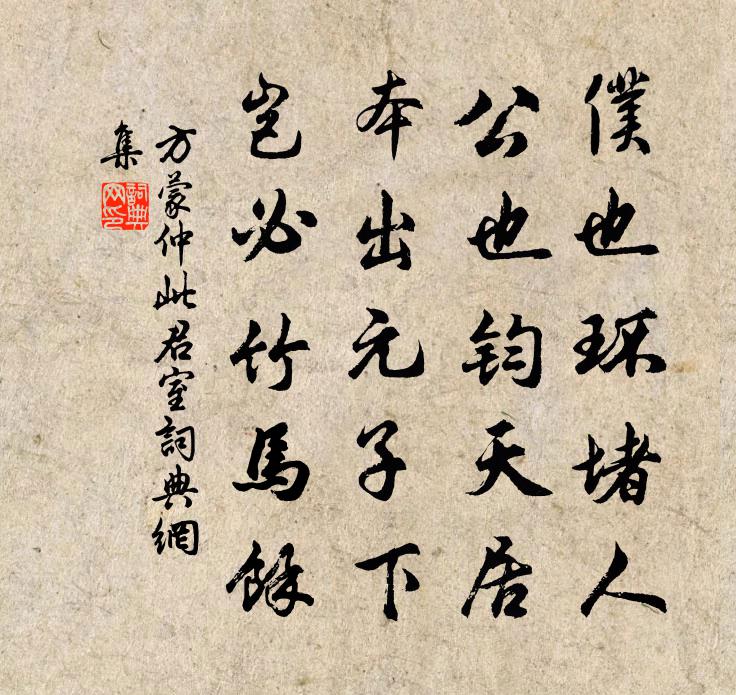 僕也环堵人
公也钧天居
本出元子下
岂必竹馬餘
方蒙仲此君室詞典網
集
詞典
网印